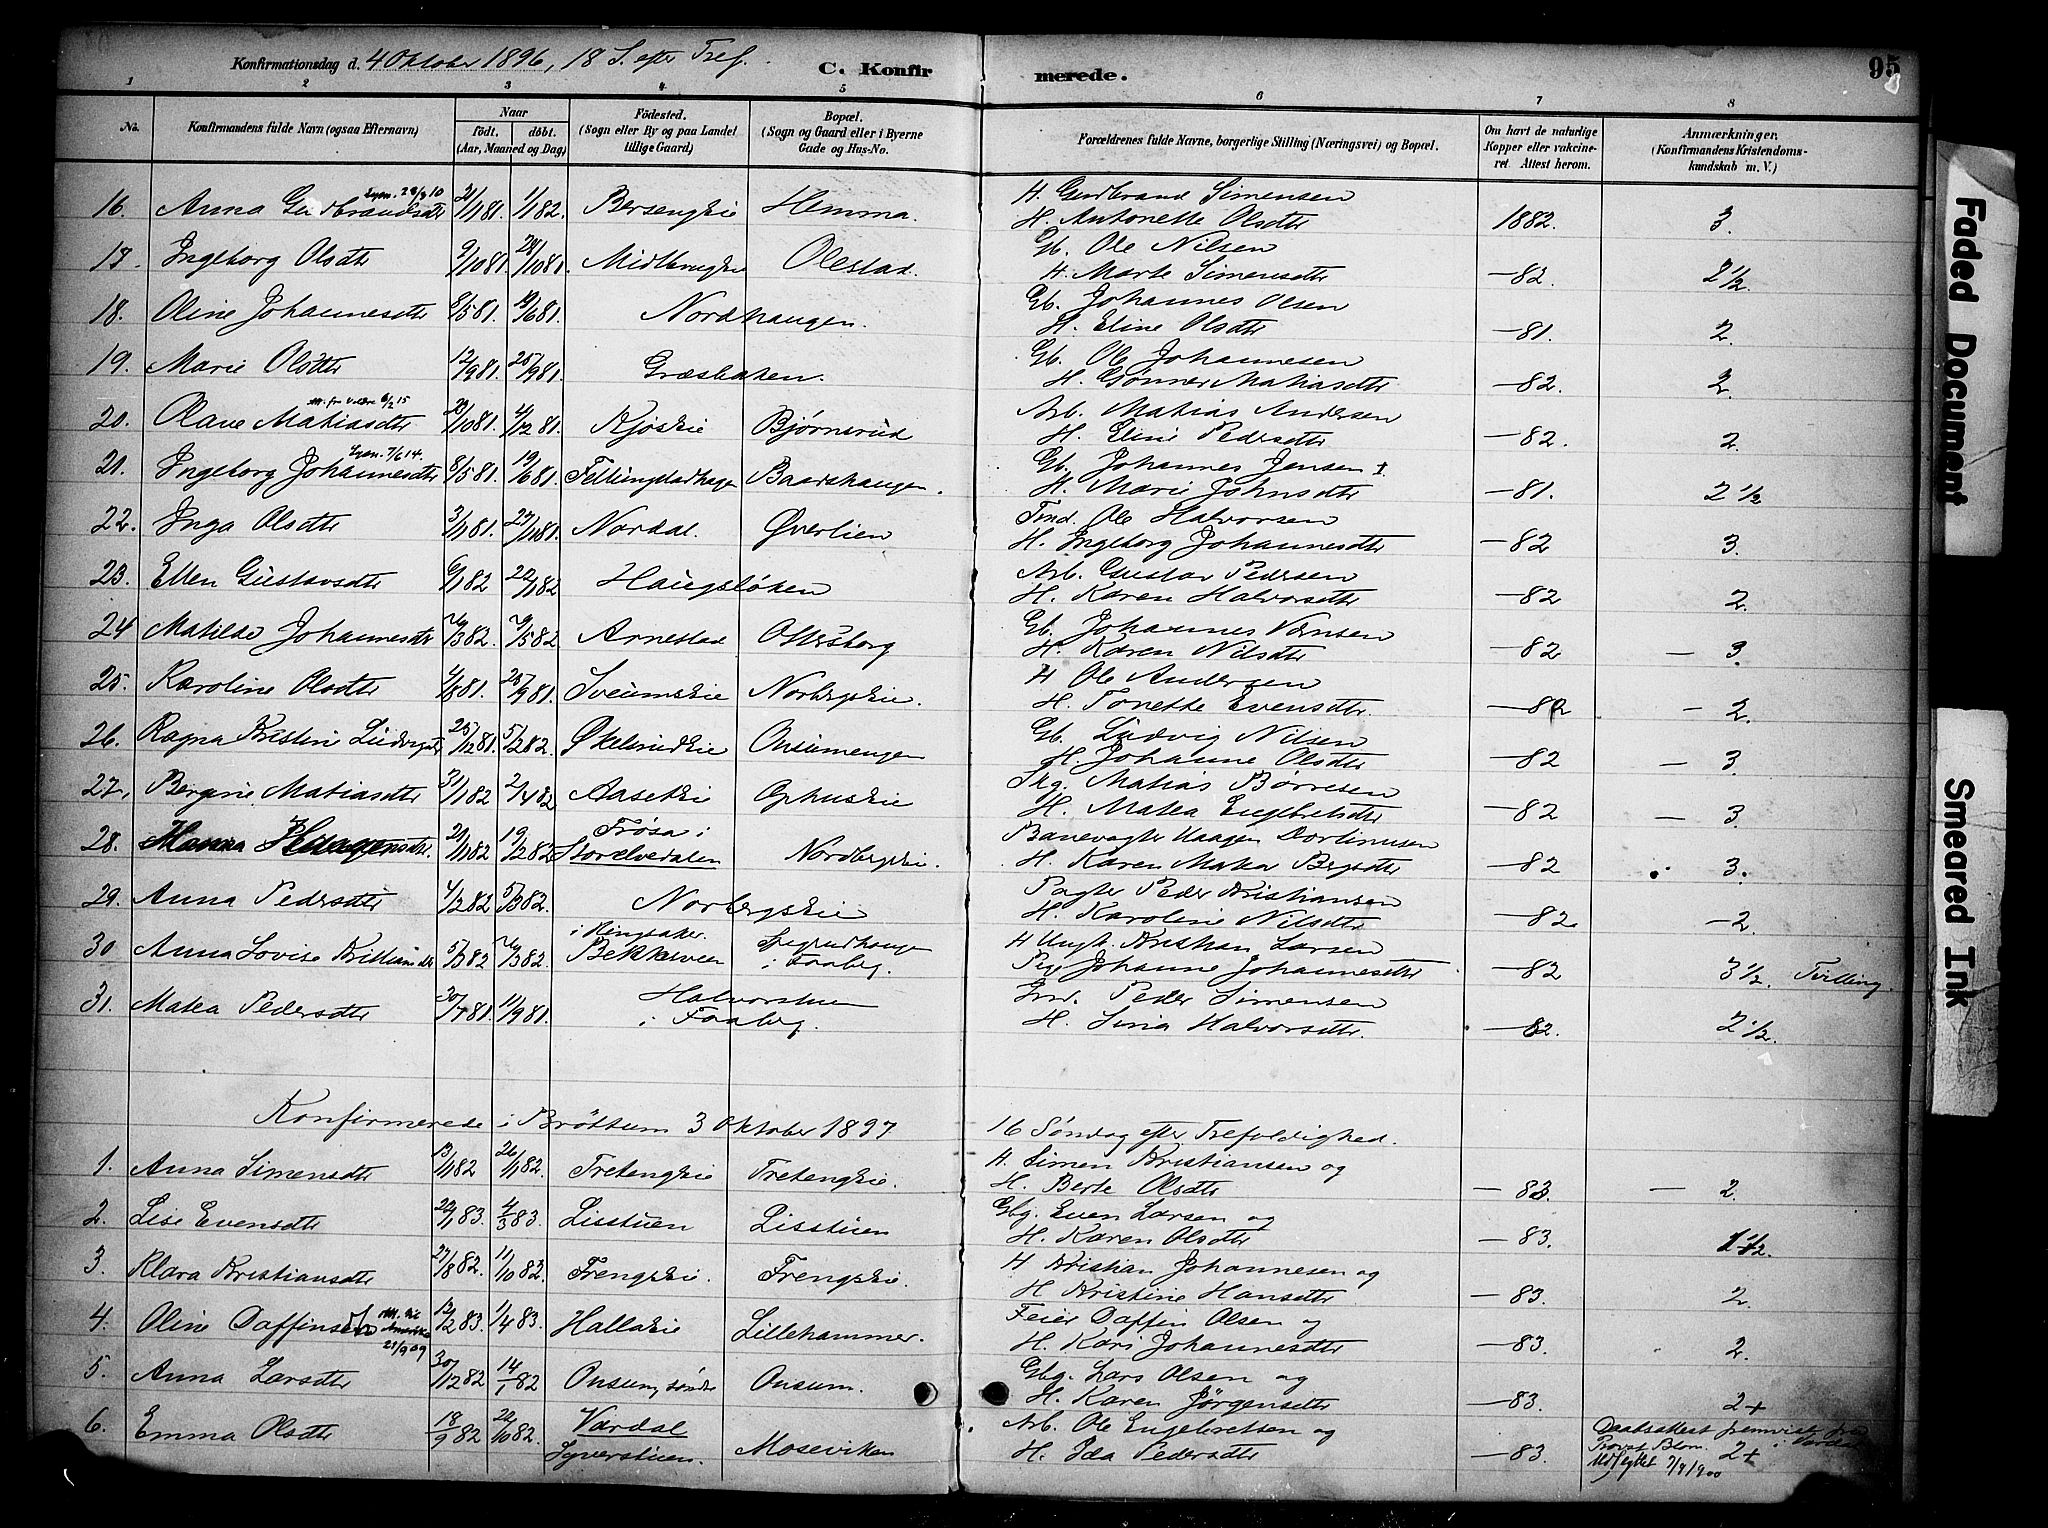 Konfirmationsdag d. 4 Oktober 1896, 18 S. efter Tref.
C. Konfir merede. 95
1 2 3 4 5 6 7 8
No. Konfirmandens fulde Navn (ogsaa Efternavn) Naar født, døbt. (Aar, Maaned og Dag) Födested. (Sogn eller By og paa Landet tillige Gaard) Bopæl. (Sogn og Gaard eller i Byerne Gade og Hus-No. Forældrenes fulde Navne, borgerlige Stilling (Næringsvei) og Bopæl. Om havt de naturlige Kopper eller vakcineret. Attest herom. Anmærkninger. (Konfirmandens Kristendomskundskab m. V.)
16. Anna Gudbrandsdtr 1/1 82. Bersengeie Hemma. H. Gudbrand Simensen
H. Antonette Olsdtr 1882. 3.
17. Ingeborg Olsdtr 9/10 81. 28/10 81. Midtengeie Olestad. Gb. Ole Nilsen
H. Marte Simensdtr -82. 2 1/2.
18. Oline Johannesdtr 8/5 81. 19/6 81. Nordhaugen. Gb. Johannes Olsen
H. Eline Olsdtr -81. 2.
19. Marie Olsdtr 12/9 81. 25/9 81. Græsbaken. Gb. Ole Johannesen
H. Gønner Matiasdtr -82. 2.
20. Olave Matiasdtr 4/12 81. Kjøseie Bjørnerud Arb. Matias Andersen
H. Eline Pedersdtr -82. 2
21. Ingeborg Johannesdtr 8/5 81. 19/6 81. Fellingstadhagen Baardshaugen. Gb. Johannes Jensen †
H. Marie Johnsdtr -81. 2 1/2
22. Inga Olsdtr 3/11 81. 27/11 81. Nordal. Øverlien Ind. Ole Halvorsen
H. Ingeborg Johannesdtr -82 3.
23. Ellen Gustavsdtr 6/1 82 22/1 82 Haugsløken Arb. Gustav Pedersen
H. Karen Halvorsdtr -82 2.
24 Matilde Johannesdtr Arnestad Ottersborg Gb. Johannes
H. Karen Nilsdtr -82 - 3.
25. Karoline Olsdtr 25/9 81. Sveumseie Norbergeie. H Ole Andersen
H. Tonette Evensdtr. -82 - 2.
26. Ragna Kristine Ludvigsdtr 25/12 81. 5/2 82. Økelsrudeie Onsumengen Gb. Ludvig Nilsen
H. Johanne Olsdtr -82 - 3.
27. Bergine Matiasdtr 31/1 82 2/4 82 Aaseteie Ophuseie Matias Børresen
H. Matea Engebretsdtr -82 - 3.
28. Haagensdtr. 21/1 82 19/2 82 Frøsa i Storelvedalen Nordbergeie. Banevogter Haagen Dortinusen
H. Karen Matea -82 3.
29. Anna Pedersdtr 4/2 82 5/3 82. Norbergeie Pagter Peder Kristiansen
H. Karoline Nilsdtr -82. -2.
30 Anna Lovise Kristiansdtr 5/3 82 26/3 82. i Ringsaker. Bekkeveen i Faaberg. H Ungk. Kristian Larsen
Pige Johanne Johannesdtr -82 3 1/2. Tvilling.
31. Matea Pedersdtr 30/7 81. 11/9 81. Halvorstuen i Faaberg. Peder Simensen
H. Sina Halvorsdtr -82. 2 1/2.
Konfirmerede i Brøttum 3 Oktober 1897 16 Søndag efter Trefoldighed.
1. Anna Simensdtr 26/11 82. Tretengeie Tretengeie. H. Simen Kristiansen og
H. Berte Olsdtr - 83. - 2.
2. Lise Evensdtr 4/3 83. Lisstuen Lisstuen Gbg. Even Larsen og
H. Karen Olsdtr - 83.
3. Klara Kristiansdtr 27/8 82. Frengseie. Frengseie. H Kristian Johannesen og
H Kristine Hansdtr - 83. 2
4. Oline Daffinsdtr 12/2 83. 1/4 83. Hallaeie Lillehammer. Feier Daffin Olsen og
H. Kari Johannesdtr -83. 2.
5. Anna Larsdtr 30/12 82 14/1 82 Onsum søndre Onsum. Gbg. Lars Olsen og
H. Karen Jørgensdtr -83. 2+
6. Emma Olsdtr 18/9 82 22/10 82. Vardal Syverstuen. Moseviken Arb. Ole Engebretsen og
H. Ida Pedersdtr -83. Daabsattest fremvist fra Provst Blom i Vardal 2+ Udflyttet 7/9 1900
Faded Document
Smeared Ink